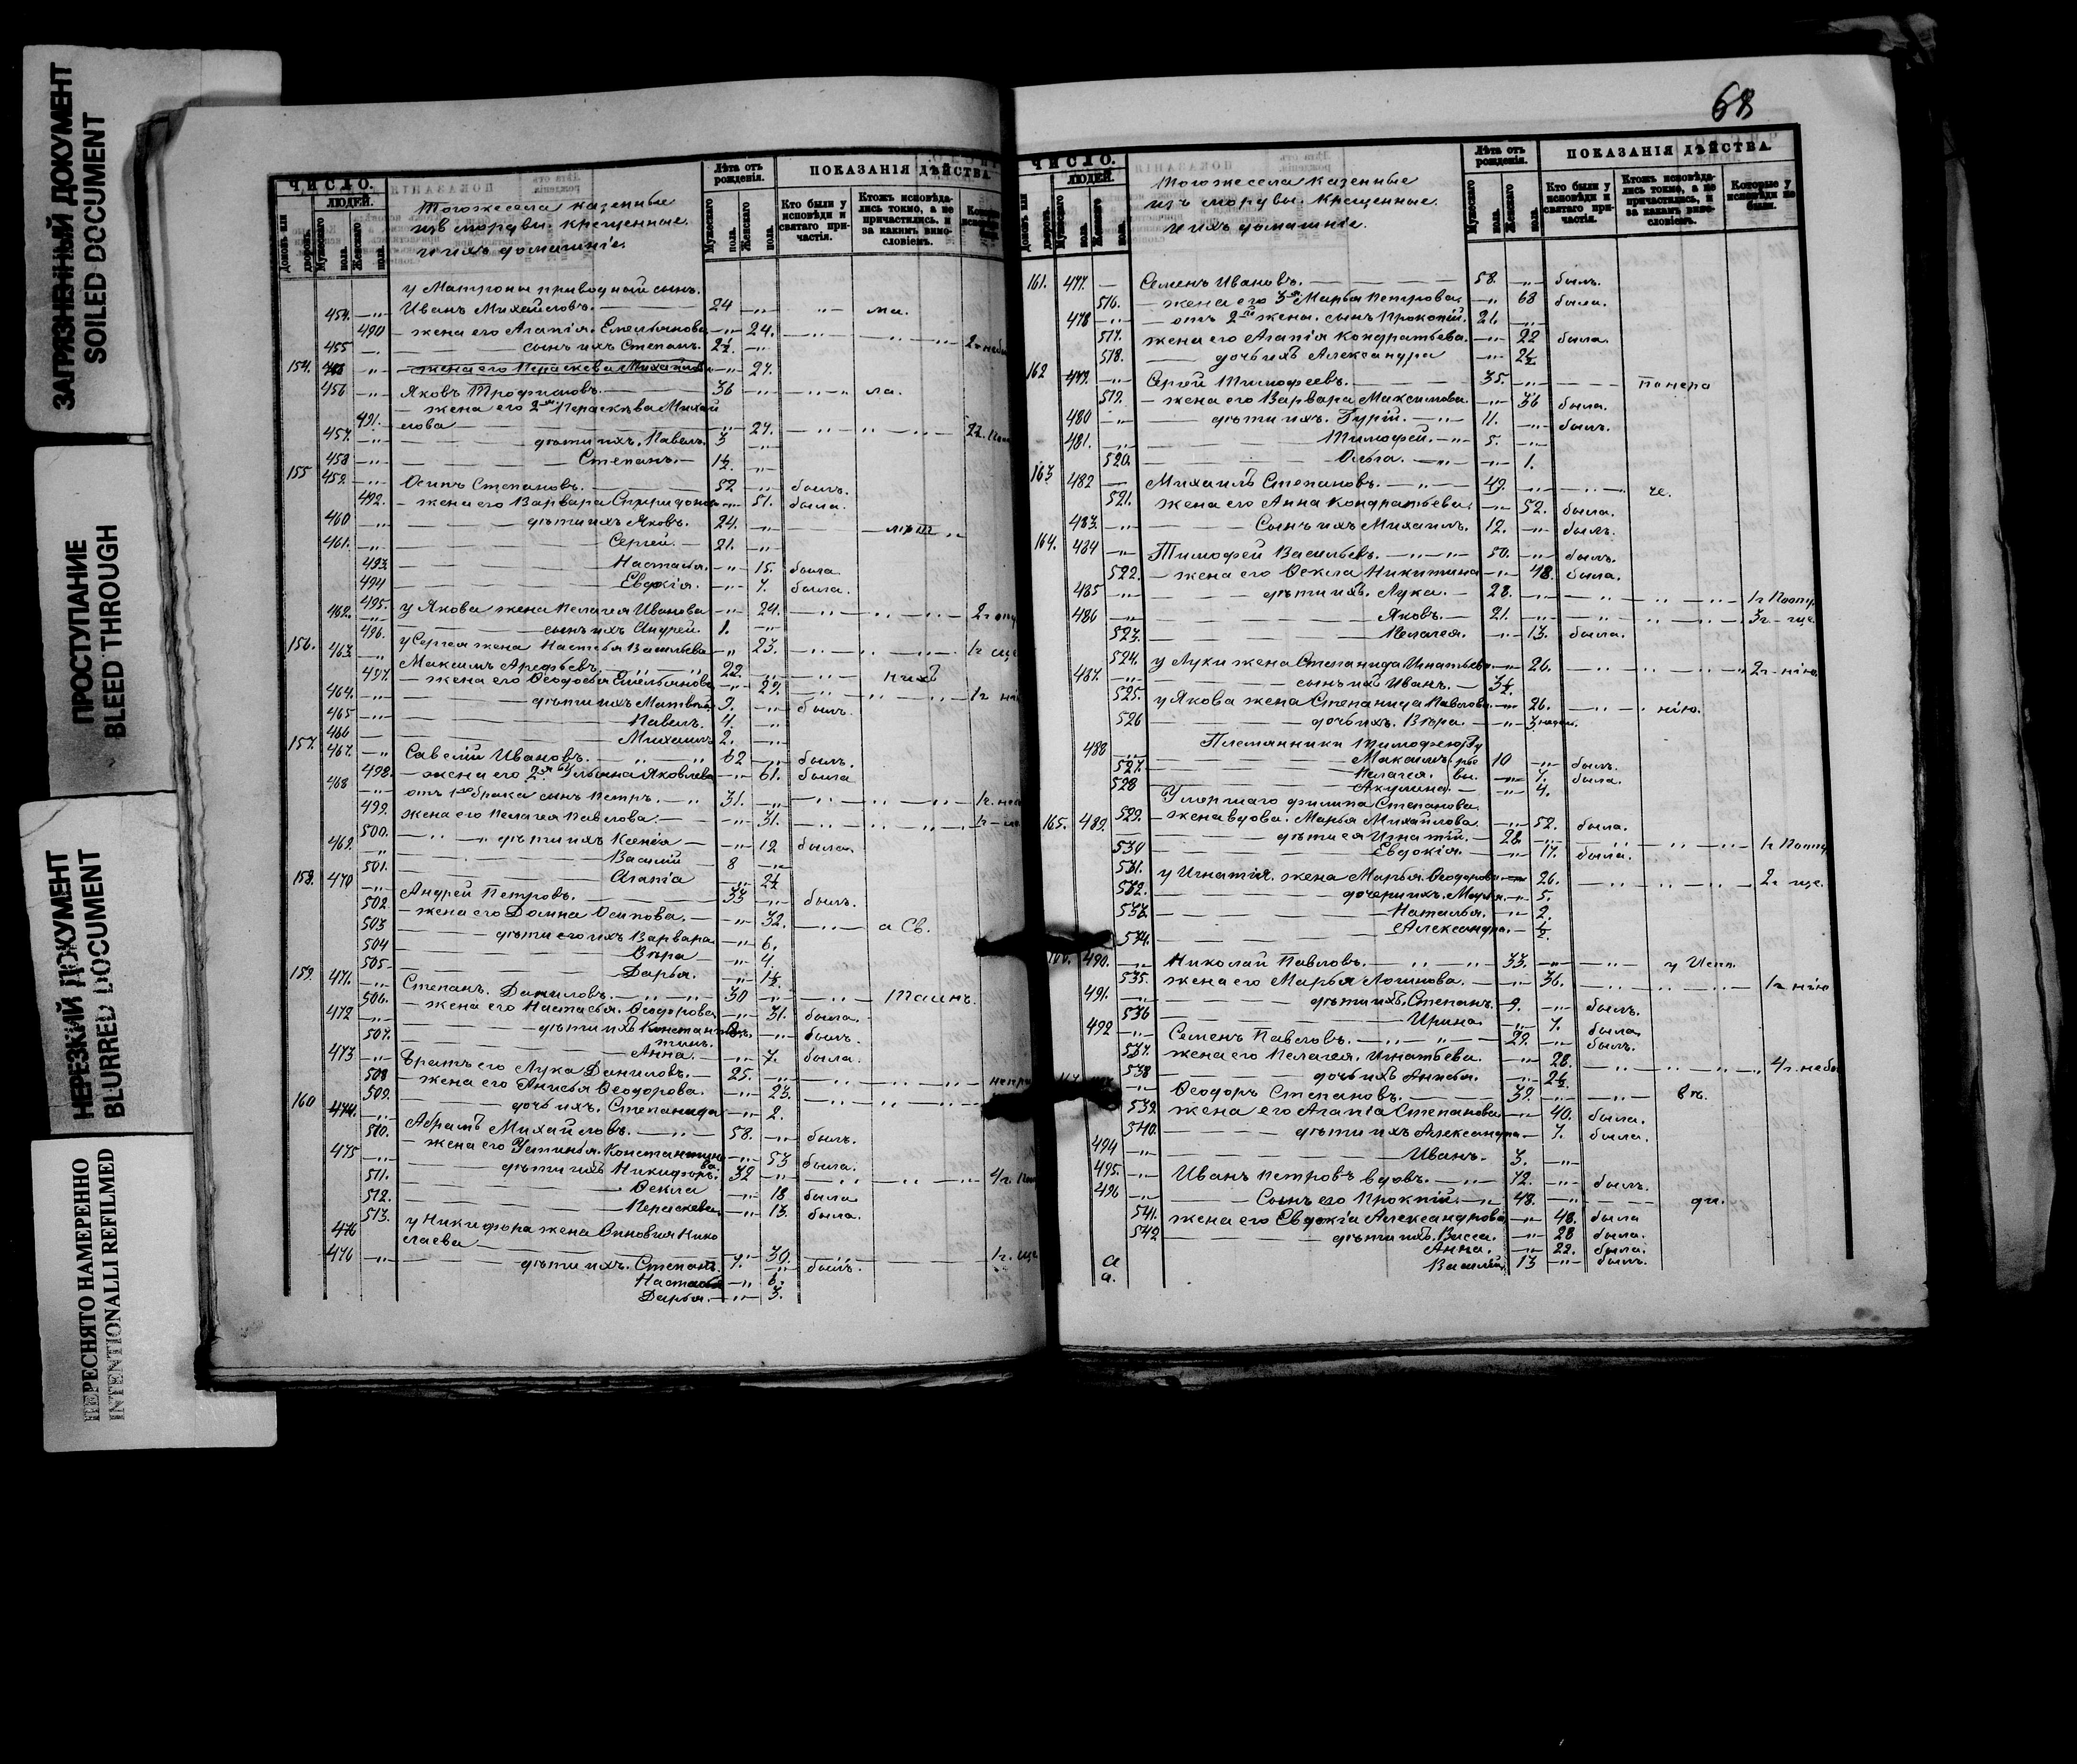 ЗАГРЯЗНЕННЫЙ ДОКУМЕНТ
SOILED DOCUMENT
ПРОСТУПАНИЕ
BLEED THROUGH
НЕРЕЗКИЙ ДОКУМЕНТ
BLURRED DOCUMENT
ПЕРЕСНЯТО НАМЕРЕННО
INTENTIONALLI REFILMED
ЧИСЛО.
ЛЮДЕЙ.
Домовъ или дворовъ.
Мужескаго пола.
Женскаго пола.
Тогожесела казенные
изъ мордвы. крещенные.
и ихъ домашніе.
Лѣта отъ рожденія.
Мужескаго пола.
Женскаго пола.
ПОКАЗАНІЯ ДѢЙСТВА.
Кто были у исповѣди и святаго причастія.
Ктожъ исповѣдались токмо, а не причастились, и за какимъ винословіемъ.
у Матроны приводный сынъ.
454. Иванъ Михайловъ. 24
490 жена его Агапія. Емельянова 24.
455 сынъ ихъ Степанъ. 2½
154. жена его Параскева Михайлова 27.
456 Яковъ Трофимовъ. 36 ла.
жена его 2я Параскѣва Михай
491. лова 27.
457. дѣти ихъ. Павелъ. 3
458 Степанъ. 1½
155 459. Осипъ Степановъ. 52 былъ.
492. жена его Варвара Спиридонова 51. была.
460 дѣти ихъ Яковъ. 24.
461. Сергей. 21.
493. Настасья. 15. была
494 Евдокія. 7. была.
495. у Якова жена Пелагея Иванова 24.
462. сынъ ихъ Андрей. 1.
496. у Сергея жена Настасья Васильева 23.
156. 463. Максимъ Арефьевъ. 22.
497. жена его Ѳеодосья Емельянова 29.
464. дѣти ихъ Матвей 9. былъ.
465 Павелъ. 4.
466 Михаилъ 2.
157. 467. Савелій Ивановъ. 62 былъ.
498. жена его 2я Ульянна Яковлева 61. была
468 отъ 1го брака сынъ Петръ. 31.
499. жена его Пелагея Павлова. 31.
500. дѣти ихъ Ксенія 12 была.
469. Василій 8
501. Агапія 2½
158. 470 Андрей Петровъ. 33 былъ.
502. жена его Домна Осипова. 32. а Св.
503 дѣти его ихъ Варвара 6.
504 Вѣра 4.
505 Дарья. 1½
159. 471. Степанъ. Даниловъ. 30 Таинъ.
506. жена его Настасья. Ѳеодорова 31. была.
472 дѣти ихъ Константинъ. былъ.
507. Анна. 7. была.
473 Братъ его Лука Даниловъ. 25.
508 жена его Анисья Ѳеодорова. 23.
509. дочь ихъ. Степанида 2.
160 474. Абрамъ Михайловъ. 58. былъ.
510. жена его Устинья. Константинова. 53 была.
475 дѣти ихъ Никифоръ. 32
511. Ѳекла 18 была
512. Параскева 13. была.
513. у Никифора жена Зиновія Нико
лаева 30.
476 дѣти ихъ. Степанъ. 9. былъ.
Настасья 6.
Дарья. 3.
68
ЧИСЛО.
ЛЮДЕЙ.
Домовъ или дворовъ.
Мужескаго пола.
Женскаго пола.
Тогожесела казенные
изъ мордвы. крещенные.
и ихъ домашніе.
Лѣта отъ рожденія.
Мужескаго пола.
Женскаго пола.
ПОКАЗАНІЯ ДѢЙСТВА.
Кто были у исповѣди и святаго причастія.
Ктожъ исповѣдались токмо, а не причастились, и за какимъ винословіемъ.
Которые у исповѣди не были.
161. 477. Семенъ Ивановъ. 58. былъ.
516. жена его 3я Марья Петрова. 68 была.
478 отъ 2й жены. сынъ Прокопій. 21.
517. жена его Агапія Кондратьева. 22 была.
518. дочь ихъ Александра 2½
162 479. Сергей Тимофеевъ. 35. по нера
519. жена его Варвара Максимова. 36 была.
480 дѣти ихъ. Гурій. 11. былъ.
481. Тимофей. 5.
520. Ольга. 1.
163 482 Михаилъ Степановъ. 49. че.
521. жена его Анна Кондратьева. 52. была.
483. Сынъ ихъ Михаилъ. 12. былъ.
164. 484 Тимофей Васильевъ. 50. былъ.
522. жена его Ѳекла Никитина 48. была.
485 дѣти ихъ. Лука. 28.
486 Яковъ. 21.
523. Пелагея. 13. была.
524. у Луки жена Степанида Игнатьева. 26. 2г. нію.
487. сынъ ихъ Иванъ. 3½
525. у Якова жена Степанида Павлова. 26. нію.
526 дочь ихъ. Вѣра. 3 недѣл.
Племянники Тимофею, Гу
488 Максимъ. рье 10 былъ.
527. Пелагея. вы. 7. была.
528 Акулина. 4.
Умершаго Филипа Степанова.
529. жена вдова. Марья Михайлова 52. была.
165. 489. дѣти ея Игнатій. 28.
530 Евдокія. 17. была.
531. у Игнатія. жена Марья. Ѳеодорова 26. 2г. ще.
532. дочери ихъ. Марья. 5.
533. Наталья. 2.
534. Александра. ½.
166. 490. Николай Павловъ. 33. у Исп.
535. жена его Марья Логинова. 36. 1г нію
491. дѣти ихъ. Степанъ. 9. былъ.
536 Ирина 7. была
492 Семенъ Павловъ. 29. былъ.
537. жена его Пелагея. Игнатьева. 28.
538 дочь ихъ Анисья. 2½.
Ѳеодоръ Степановъ. 39. вѣ.
539. жена его Агапія Степанова 40. была.
540. дѣти ихъ Александра 7. была.
494 Иванъ. 3.
495. Иванъ Петровъ вдовъ. 72. былъ.
496 Сынъ его Прокпій. 48. ди.
541. жена его Евдокія Александрова 48. была
542 дѣти ихъ. Васса. 28 была.
Анна. 22. была.
Василій. 13 былъ.